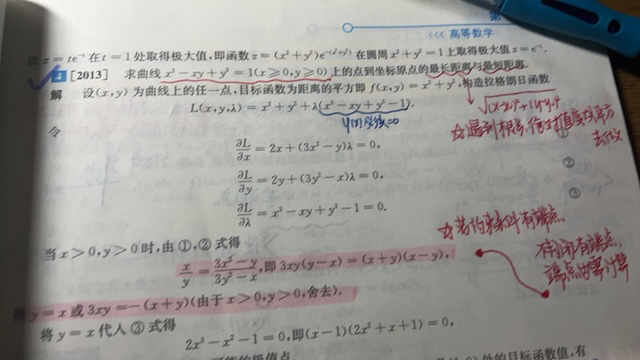 第
<<< 高等数学
z = te⁻ᵗ 在 t = 1 处取得极大值,即函数 z = (x² + y²)e^{-(x²+y²)} 在圆周 x² + y² = 1 上取得极大值 z = e⁻¹.
4 [2013] 求曲线 x³ − xy + y³ = 1(x ⩾ 0, y ⩾ 0) 上的点到坐标原点的最长距离与最短距离.
解 设(x, y) 为曲线上的任一点,目标函数为距离的平方即 f(x, y) = x² + y², 构造拉格朗日函数
L(x, y, λ) = x² + y² + λ(x³ − xy + y³ − 1).
令
∂L/∂x = 2x + (3x² − y)λ = 0, ①
∂L/∂y = 2y + (3y² − x)λ = 0, ②
∂L/∂λ = x³ − xy + y³ − 1 = 0. ③
遇到根号,
去做
若约束条件有端点,
端点
计算
当 x > 0, y > 0 时,由 ①,② 式得
x/y = (3x² − y)/(3y² − x), 即 3xy(y − x) = (x + y)(x − y),
得 y = x 或 3xy = −(x + y)(由于 x > 0, y > 0, 舍去).
将 y = x 代入 ③ 式得
2x³ − x² − 1 = 0, 即(x − 1)(2x² + x + 1) = 0,
的极值点
的目标函数值,有